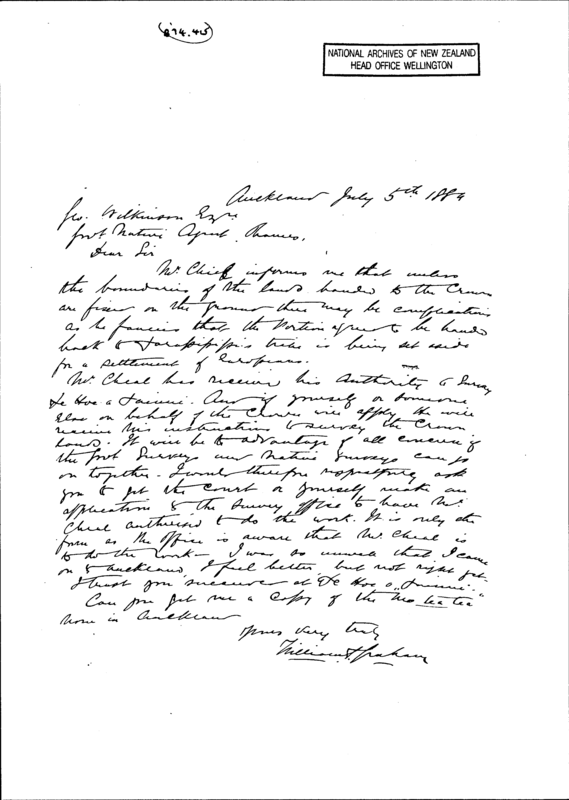 874.40
NATIONAL ARCHIVES OF NEW ZEALAND
HEAD OFFICE WELLINGTON
Auckland July 5th 1884
Geo. Wilkinson Esqre
Govt Native Agent, Thames,
Dear Sir
Mr. informs me that unless
the boundaries of the lands handed to the Crown
are fixed on the ground there may be complications
as he fancies that the Portion agreed to be handed
back to tribe is being set aside
for a settlement of Europeans.
Mr. Cheal has received his Authority to Survey
Te Hoe o Tainui. And if yourself or someone
else on behalf of the Crown will apply he will
receive his instructions to survey the Crown
lands. It will be to advantage of all concerned if
the Govt Surveys and Native Surveys can go
on together. I would therefore respectfully ask
you to get the Court or yourself make an
application to the Survey office to have Mr.
Cheal authorised to do the work. It is only
form as the Office is aware that Mr. Cheal is
to do the work — I was so unwell that I came
on to Auckland, I feel better but not right yet.
I trust you succeeded at Te Hoe o "Tainui."
Can you get me a Copy of the
none in Auckland
yours very truly
William Graham